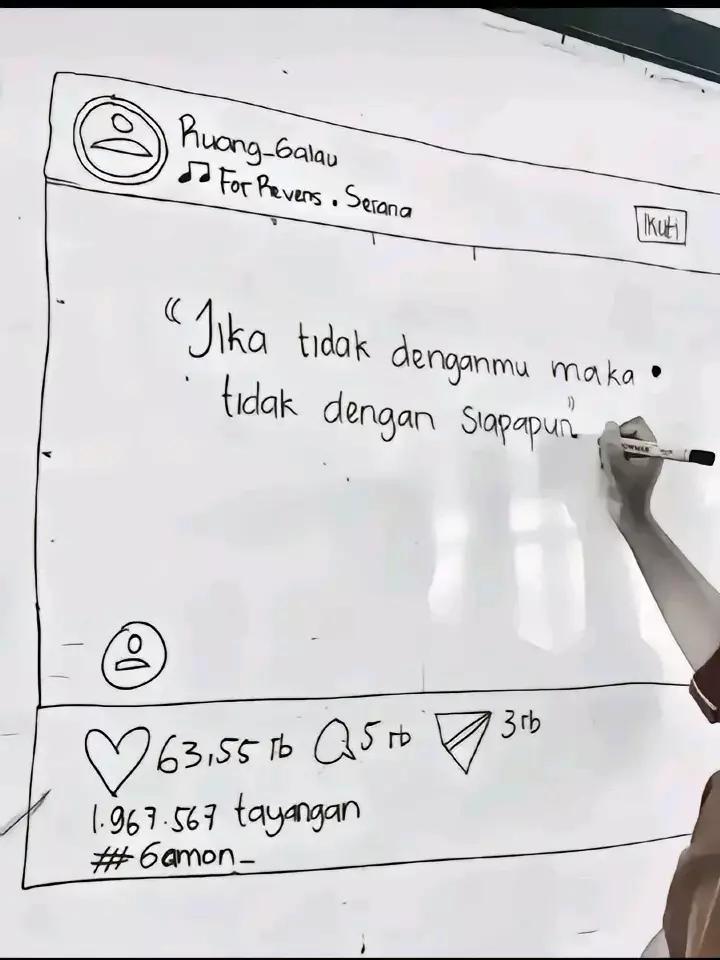 Ruang_Galau
For Revens . Serana
Ikuti
“Jika tidak denganmu maka
tidak dengan siapapun”
63,55 rb 5 rb 3 rb
1.967.567 tayangan
# Gamon_